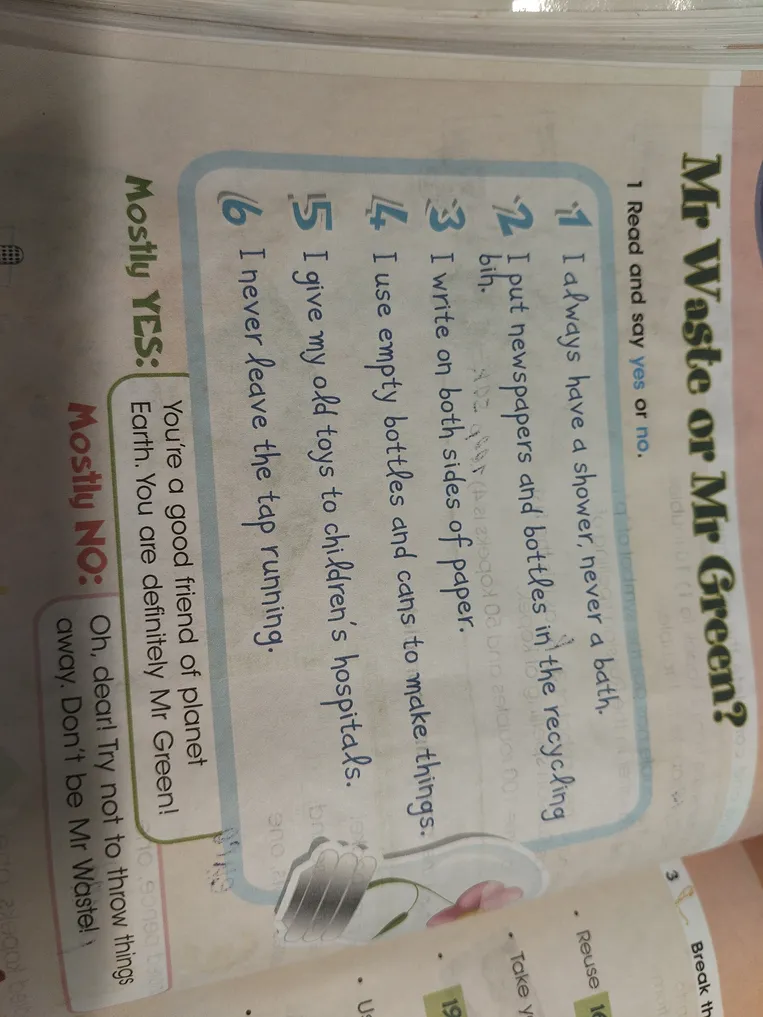 Mr Waste or Mr Green?
1 Read and say yes or no.
1 I always have a shower, never a bath.
2 I put newspapers and bottles in the recycling
bin.
3 I write on both sides of paper.
4 I use empty bottles and cans to make things.
5 I give my old toys to children's hospitals.
6 I never leave the tap running.
Mostly YES:
You're a good friend of planet
Earth. You are definitely Mr Green!
Mostly NO:
Oh, dear! Try not to throw things
away. Don't be Mr Waste!
3
Break
Reuse
Take
19